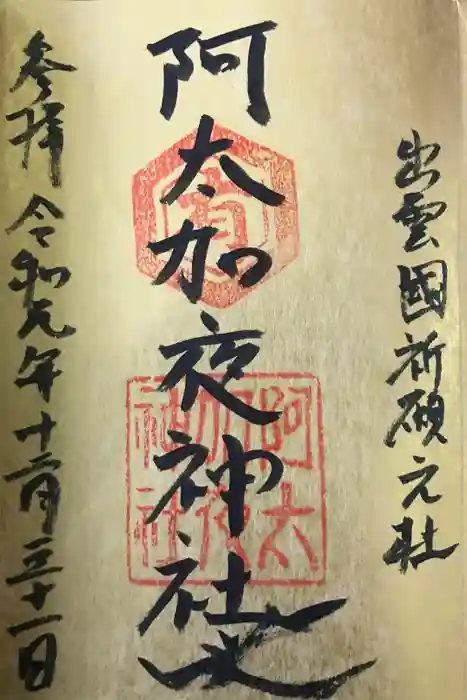 出雲國祈願元社
阿太加夜神社
参拝 令和元年十二月三十一日
有
阿太
加夜
神社